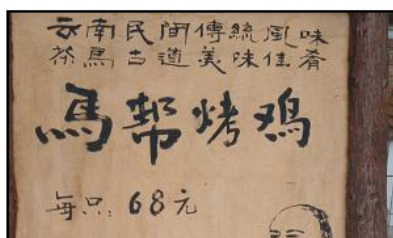 云南民间傳統風味
茶馬古道美味佳肴
馬帮烤鸡
每只:68元